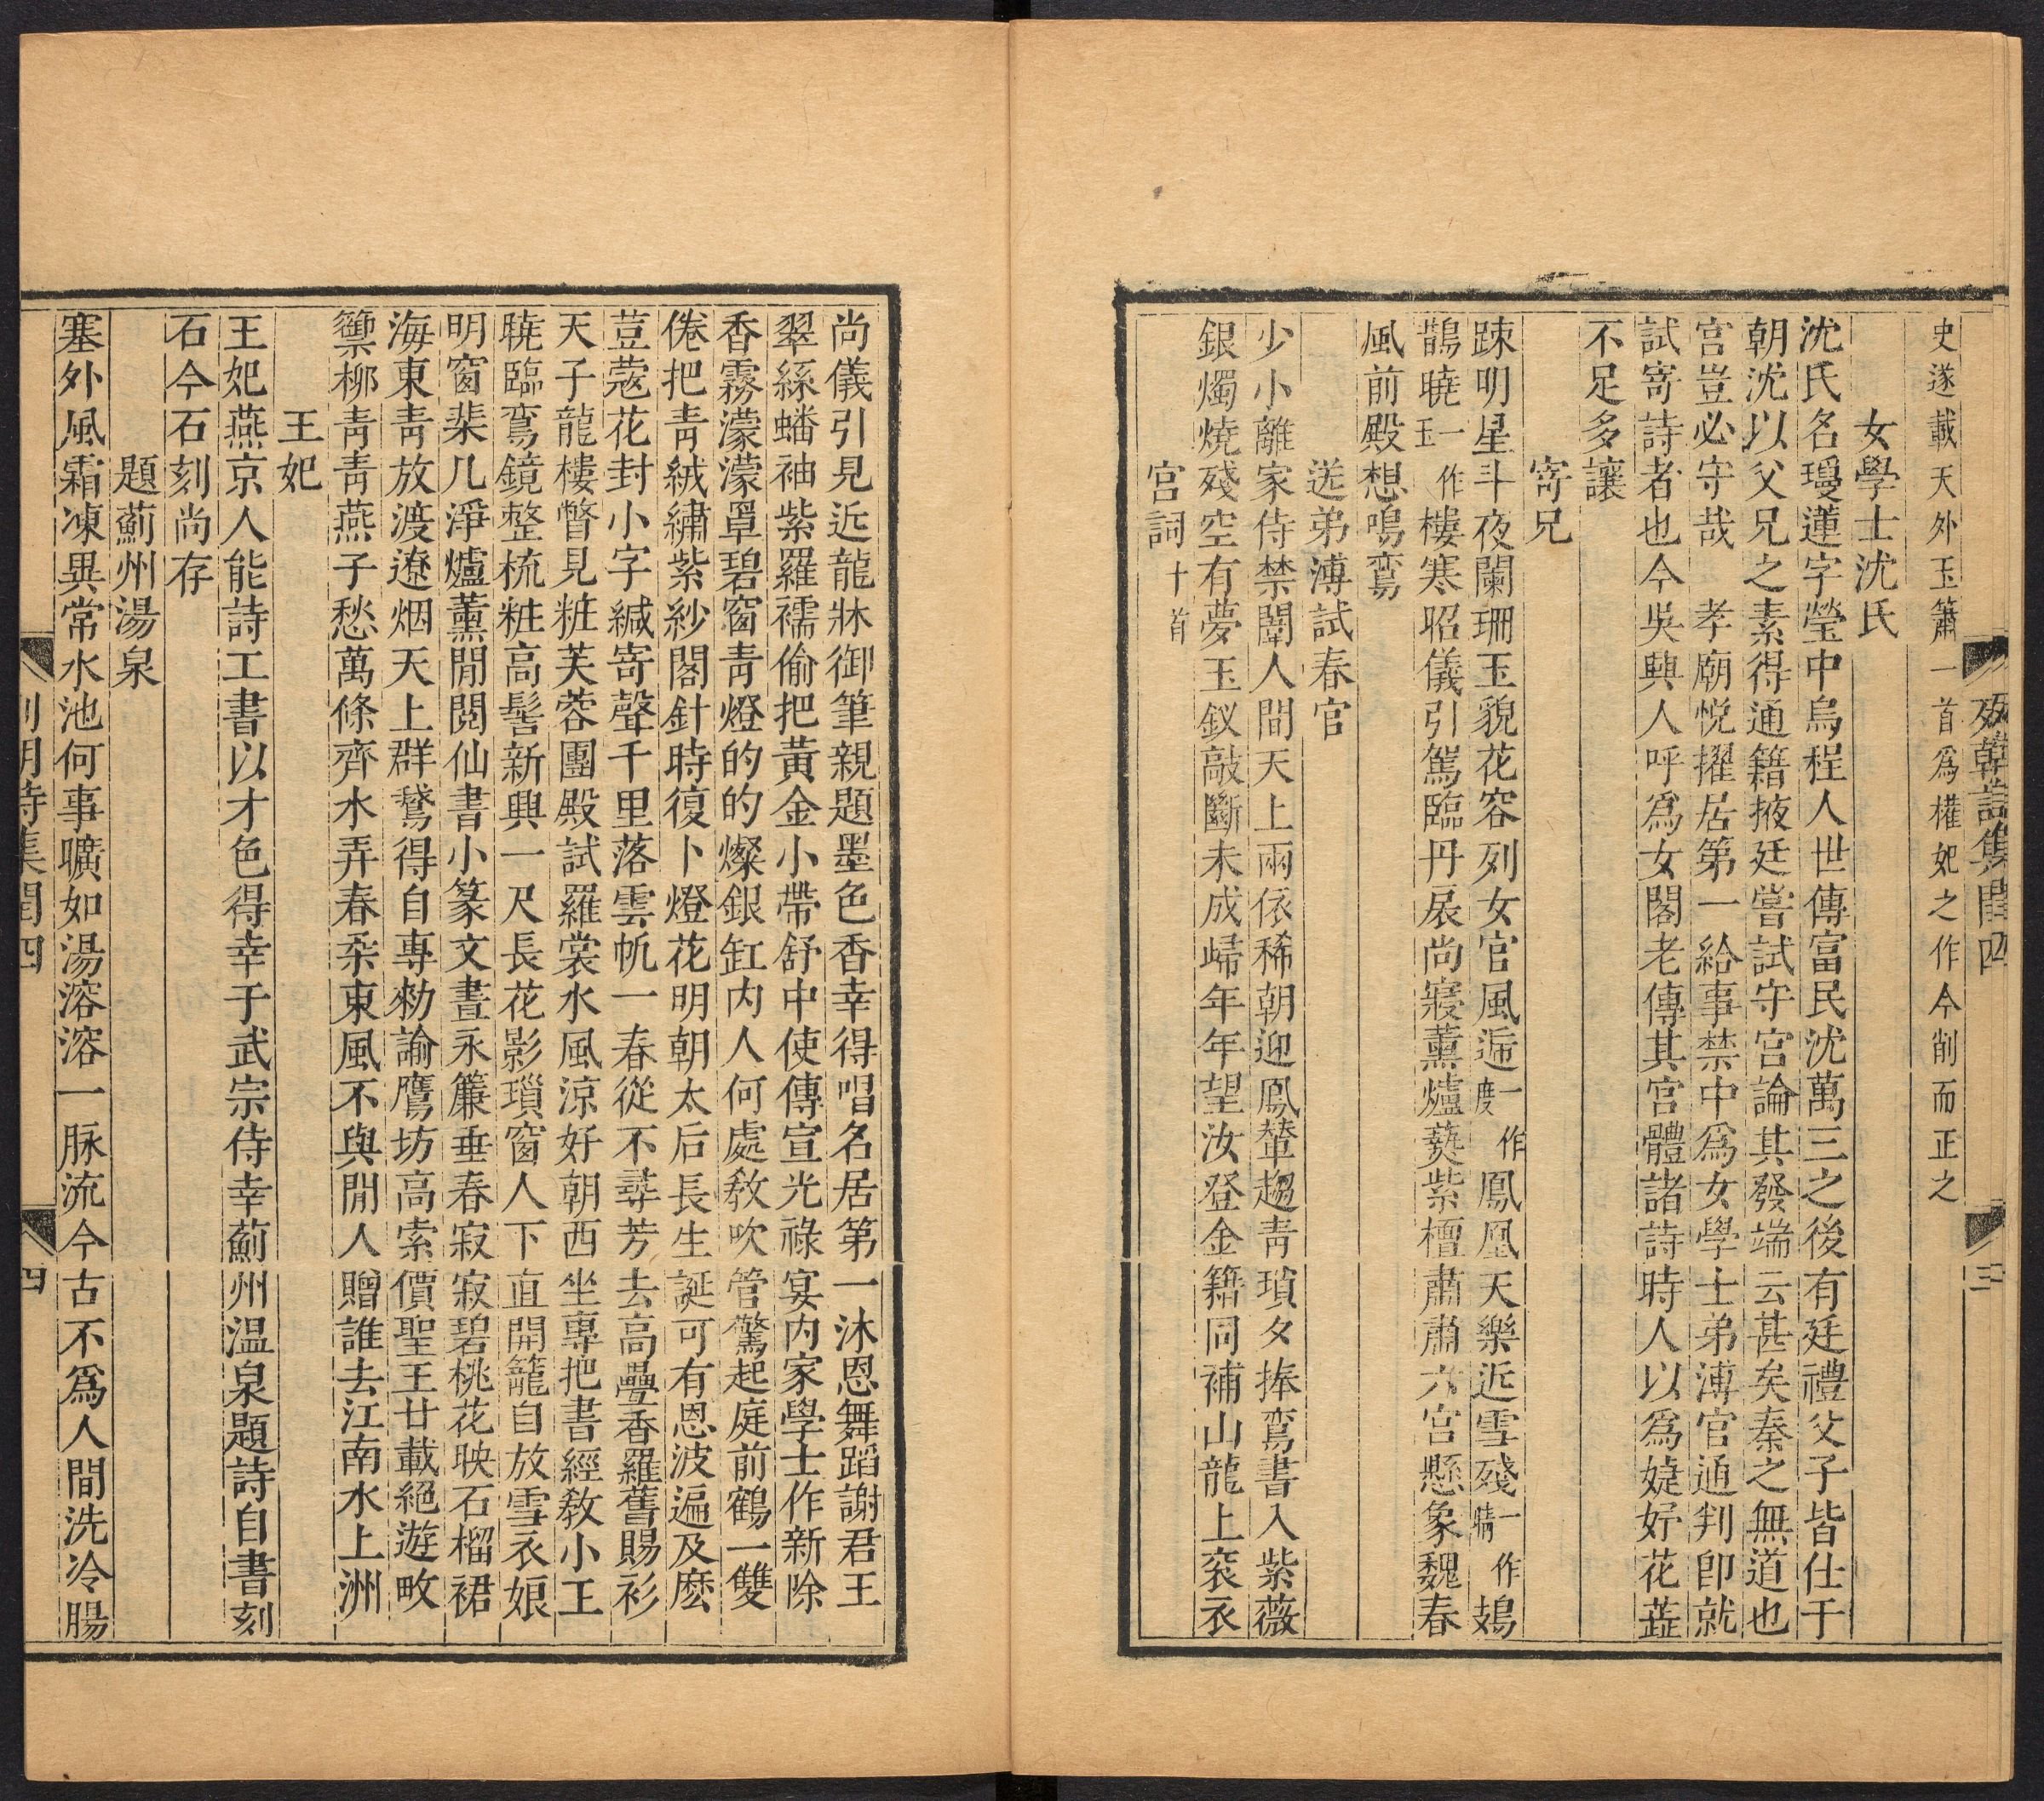 史遂載天外玉簫一首爲權妃之作今削而正之
女學士沈氏
沈氏名瓊蓮字瑩中烏程人世傳富民沈萬三之後有廷禮父子皆仕于
朝沈以父兄之素得通籍掖廷嘗試守宮論其發端云甚矣秦之無道也
宮豈必守哉　孝廟悅擢居第一給事禁中爲女學士弟溥官通判卽就
試寄詩者也今吳興人呼爲女閣老傳其宮體諸詩時人以爲婕妤花蘂
不足多讓
寄兄
疎明星斗夜闌珊玉貌花容列女官風遞一作度鳳凰天樂近雪殘一作晴鳷
鵲曉一作玉樓寒昭儀引駕臨丹扆尚寢薰爐爇紫檀肅肅六宮懸象魏春
風前殿想鳴鸞
送弟溥試春官
少小離家侍禁闈人間天上兩依稀朝迎鳳輦趨靑瑣夕捧鸞書入紫薇
銀燭燒殘空有夢玉釵敲斷未成歸年年望汝登金籍同補山龍上袞衣
宮詞十首
列朝詩集閏四
三
尚儀引見近龍牀御筆親題墨色香幸得唱名居第一沐恩舞蹈謝君王
翠絲蟠袖紫羅襦偷把黃金小帶舒中使傳宣光祿宴內家學士作新除
香霧濛濛罩碧窗靑燈的的燦銀缸內人何處敎吹管驚起庭前鶴一雙
倦把靑絨繡紫紗閣針時復卜燈花明朝太后長生誕可有恩波遍及麽
荳蔻花封小字緘寄聲千里落雲帆一春從不尋芳去高疊香羅舊賜衫
天子龍樓瞥見粧芙蓉團殿試羅裳水風涼好朝西坐專把書經敎小王
曉臨鸞鏡整梳粧高髻新興一尺長花影瑣窗人下直開籠自放雪衣娘
明窗棐几淨爐薰閒閱仙書小篆文晝永簾垂春寂寂碧桃花映石榴裙
海東靑放渡遼烟天上群鵞得自專勑諭鷹坊高索價聖王廿載絕遊畋
籞柳靑靑燕子愁萬條齊水弄春柔東風不與閒人贈誰去江南水上洲
王妃
王妃燕京人能詩工書以才色得幸于武宗侍幸薊州温泉題詩自書刻
石今石刻尚存
題薊州湯泉
塞外風霜凍異常水池何事曠如湯溶溶一脉流今古不爲人間洗冷腸
列朝詩集閏四
四